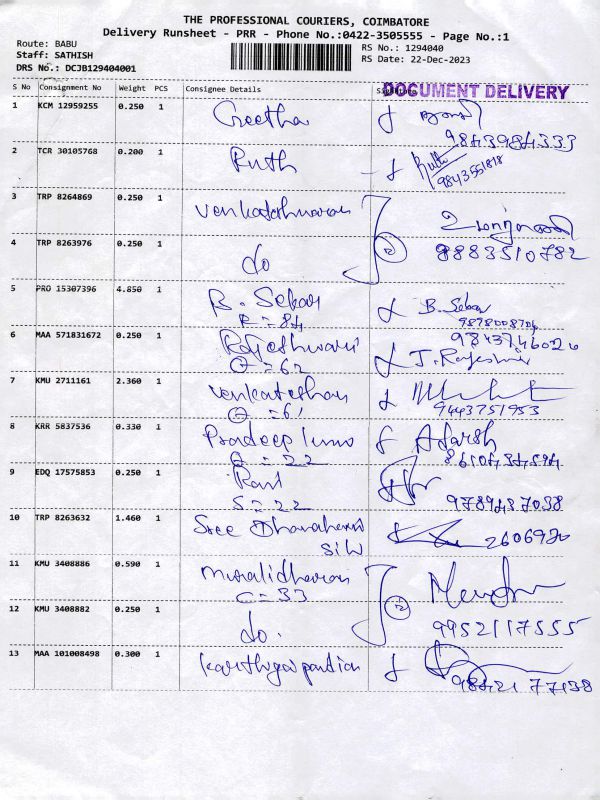 THE PROFESSIONAL COURIERS, COIMBATORE
Delivery Runsheet - PRR - Phone No.:0422-3505555 - Page No.:1
Route: BABU
Staff: SATHISH
DRS No.: DCJB129404001
RS No.: 1294040
RS Date: 22-Dec-2023
DOCUMENT DELIVERY
S No Consignment No Weight PCS Consignee Details
1 KCM 12959255 0.250 1 Geetha
9843984333
2 TCR 30105768 0.200 1 Ruth Ruth
9843551818
3 TRP 8264869 0.250 1
4 TRP 8263976 0.250 1 do 2 8883510782
5 PRO 15307396 4.850 1 B. Sekar B. Sekar
R = 84
6 MAA 571831672 0.250 1 Rajeshwari
9843746026
= 62
7 KMU 2711161 2.360 1 Venkateshan
9443751953
= 61
8 KRR 5837536 0.330 1 Pradeep Adarsh
= 22
9 EDQ 17575853 0.250 1
S = 22 9789437038
10 TRP 8263632 1.460 1 Sree 2606920
11 KMU 3408886 0.590 1 Muralidharan
C = 33
12 KMU 3408882 0.250 1 do. 2
9952117555
13 MAA 101008498 0.300 1
9842177138